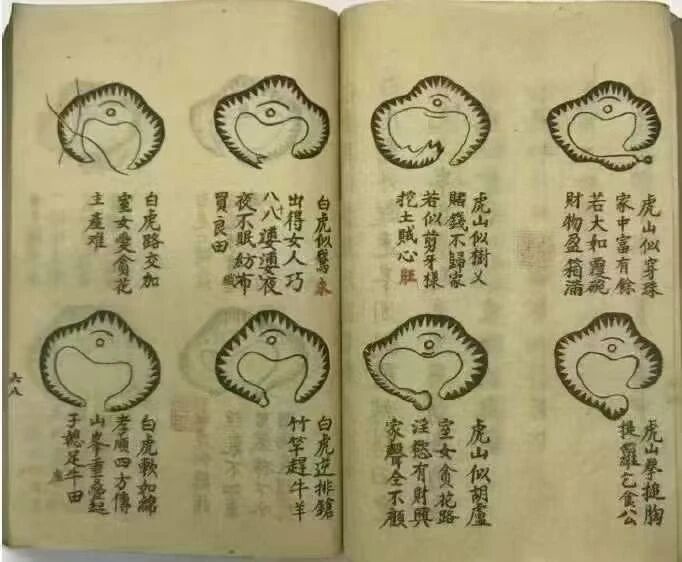 虎山似穿珠
家中富有餘
若大如覆碗
財物盈箱滿
虎山似樹乂
賭錢不歸家
若似剪牙樣
挖土賊心旺
虎山拳搥胸
提羅乞食公
虎山似胡盧
室女貪花路
淫慾有財興
家聲全不顧
白虎似
出得女人巧
八八婆婆夜
夜不眠紡布
買良田
白虎路交加
室女愛貪花
主產難
白虎逆排鎗
竹竿趕牛羊
白虎軟如綿
孝順四方傳
山峯重疊起
子媳足牛田
六八